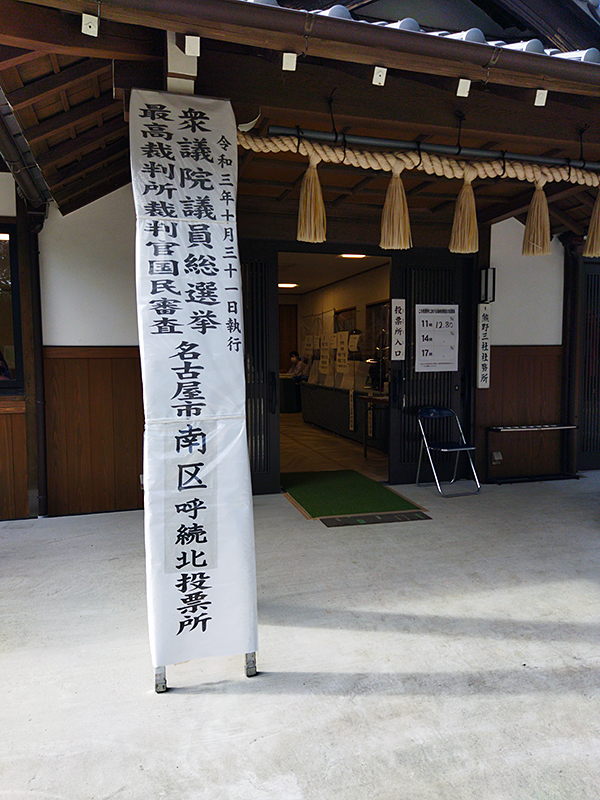 令和三年十月三十一日執行
衆議院議員総選挙
最高裁判所裁判官国民審査
名古屋市南区呼続北投票所
投票所入口
11時 12.80
14時
17時
熊野三社社務所